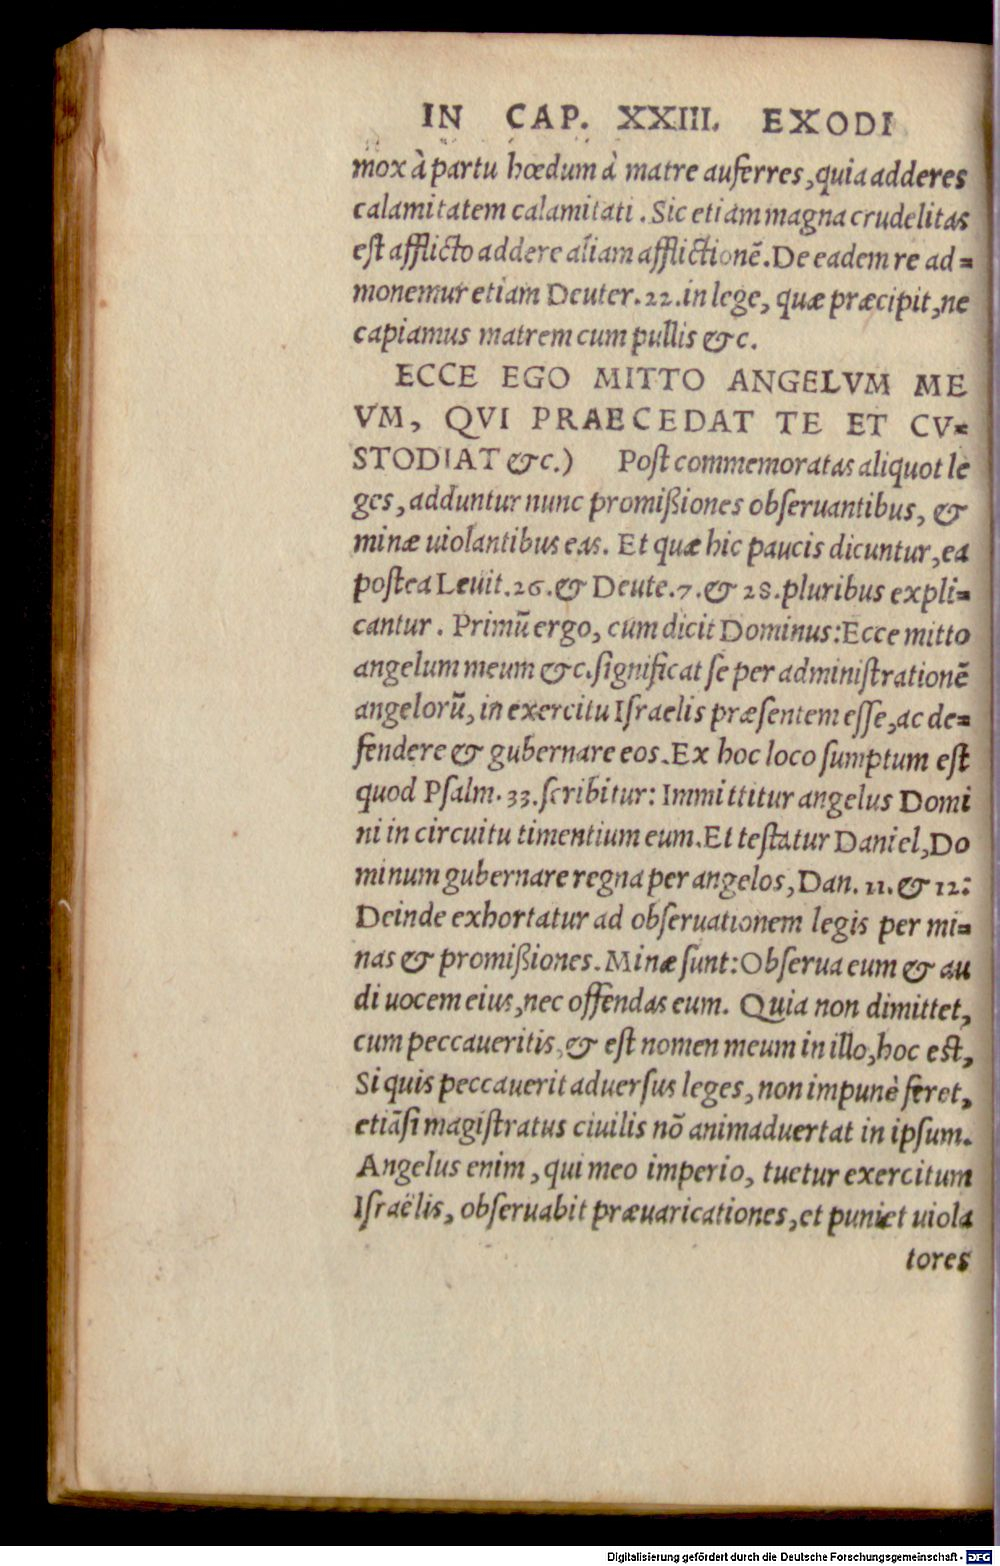 IN CAP. XXIII. EXODI
mox à partu hœdum à matre auferres, quia adderes
calamitatem calamitati. Sic etiam magna crudelitas
est afflicto addere aliam afflictionē. De eadem re ad=
monemur etiam Deuter. 22. in lege, quæ præcipit, ne
capiamus matrem cum pullis &c.
ECCE EGO MITTO ANGELVM ME
VM, QVI PRAECEDAT TE ET CV=
STODIAT &c.) Post commemoratas aliquot le
ges, adduntur nunc promißiones obseruantibus, &
minæ uiolantibus eas. Et quæ hic paucis dicuntur, ea
postea Leuit. 26. & Deute. 7. & 28. pluribus expli=
cantur. Primũ ergo, cum dicit Dominus: Ecce mitto
angelum meum &c. significat se per administrationē
angelorũ, in exercitu Israelis præsentem esse, ac de=
fendere & gubernare eos. Ex hoc loco sumptum est
quod Psalm. 33. scribitur: Immittitur angelus Domi
ni in circuitu timentium eum. Et testatur Daniel, Do
minum gubernare regna per angelos, Dan. 11. & 12:
Deinde exhortatur ad obseruationem legis per mi=
nas & promißiones. Minæ sunt: Obserua eum & au
di uocem eius, nec offendas eum. Quia non dimittet,
cum peccaueritis, & est nomen meum in illo, hoc est,
Si quis peccauerit aduersus leges, non impunè feret,
etiãsi magistratus ciuilis nõ animaduertat in ipsum.
Angelus enim, qui meo imperio, tuetur exercitum
Israëlis, obseruabit præuaricationes, et puniet uiola
tores
Digitalisierung gefördert durch die Deutsche Forschungsgemeinschaft - DFG